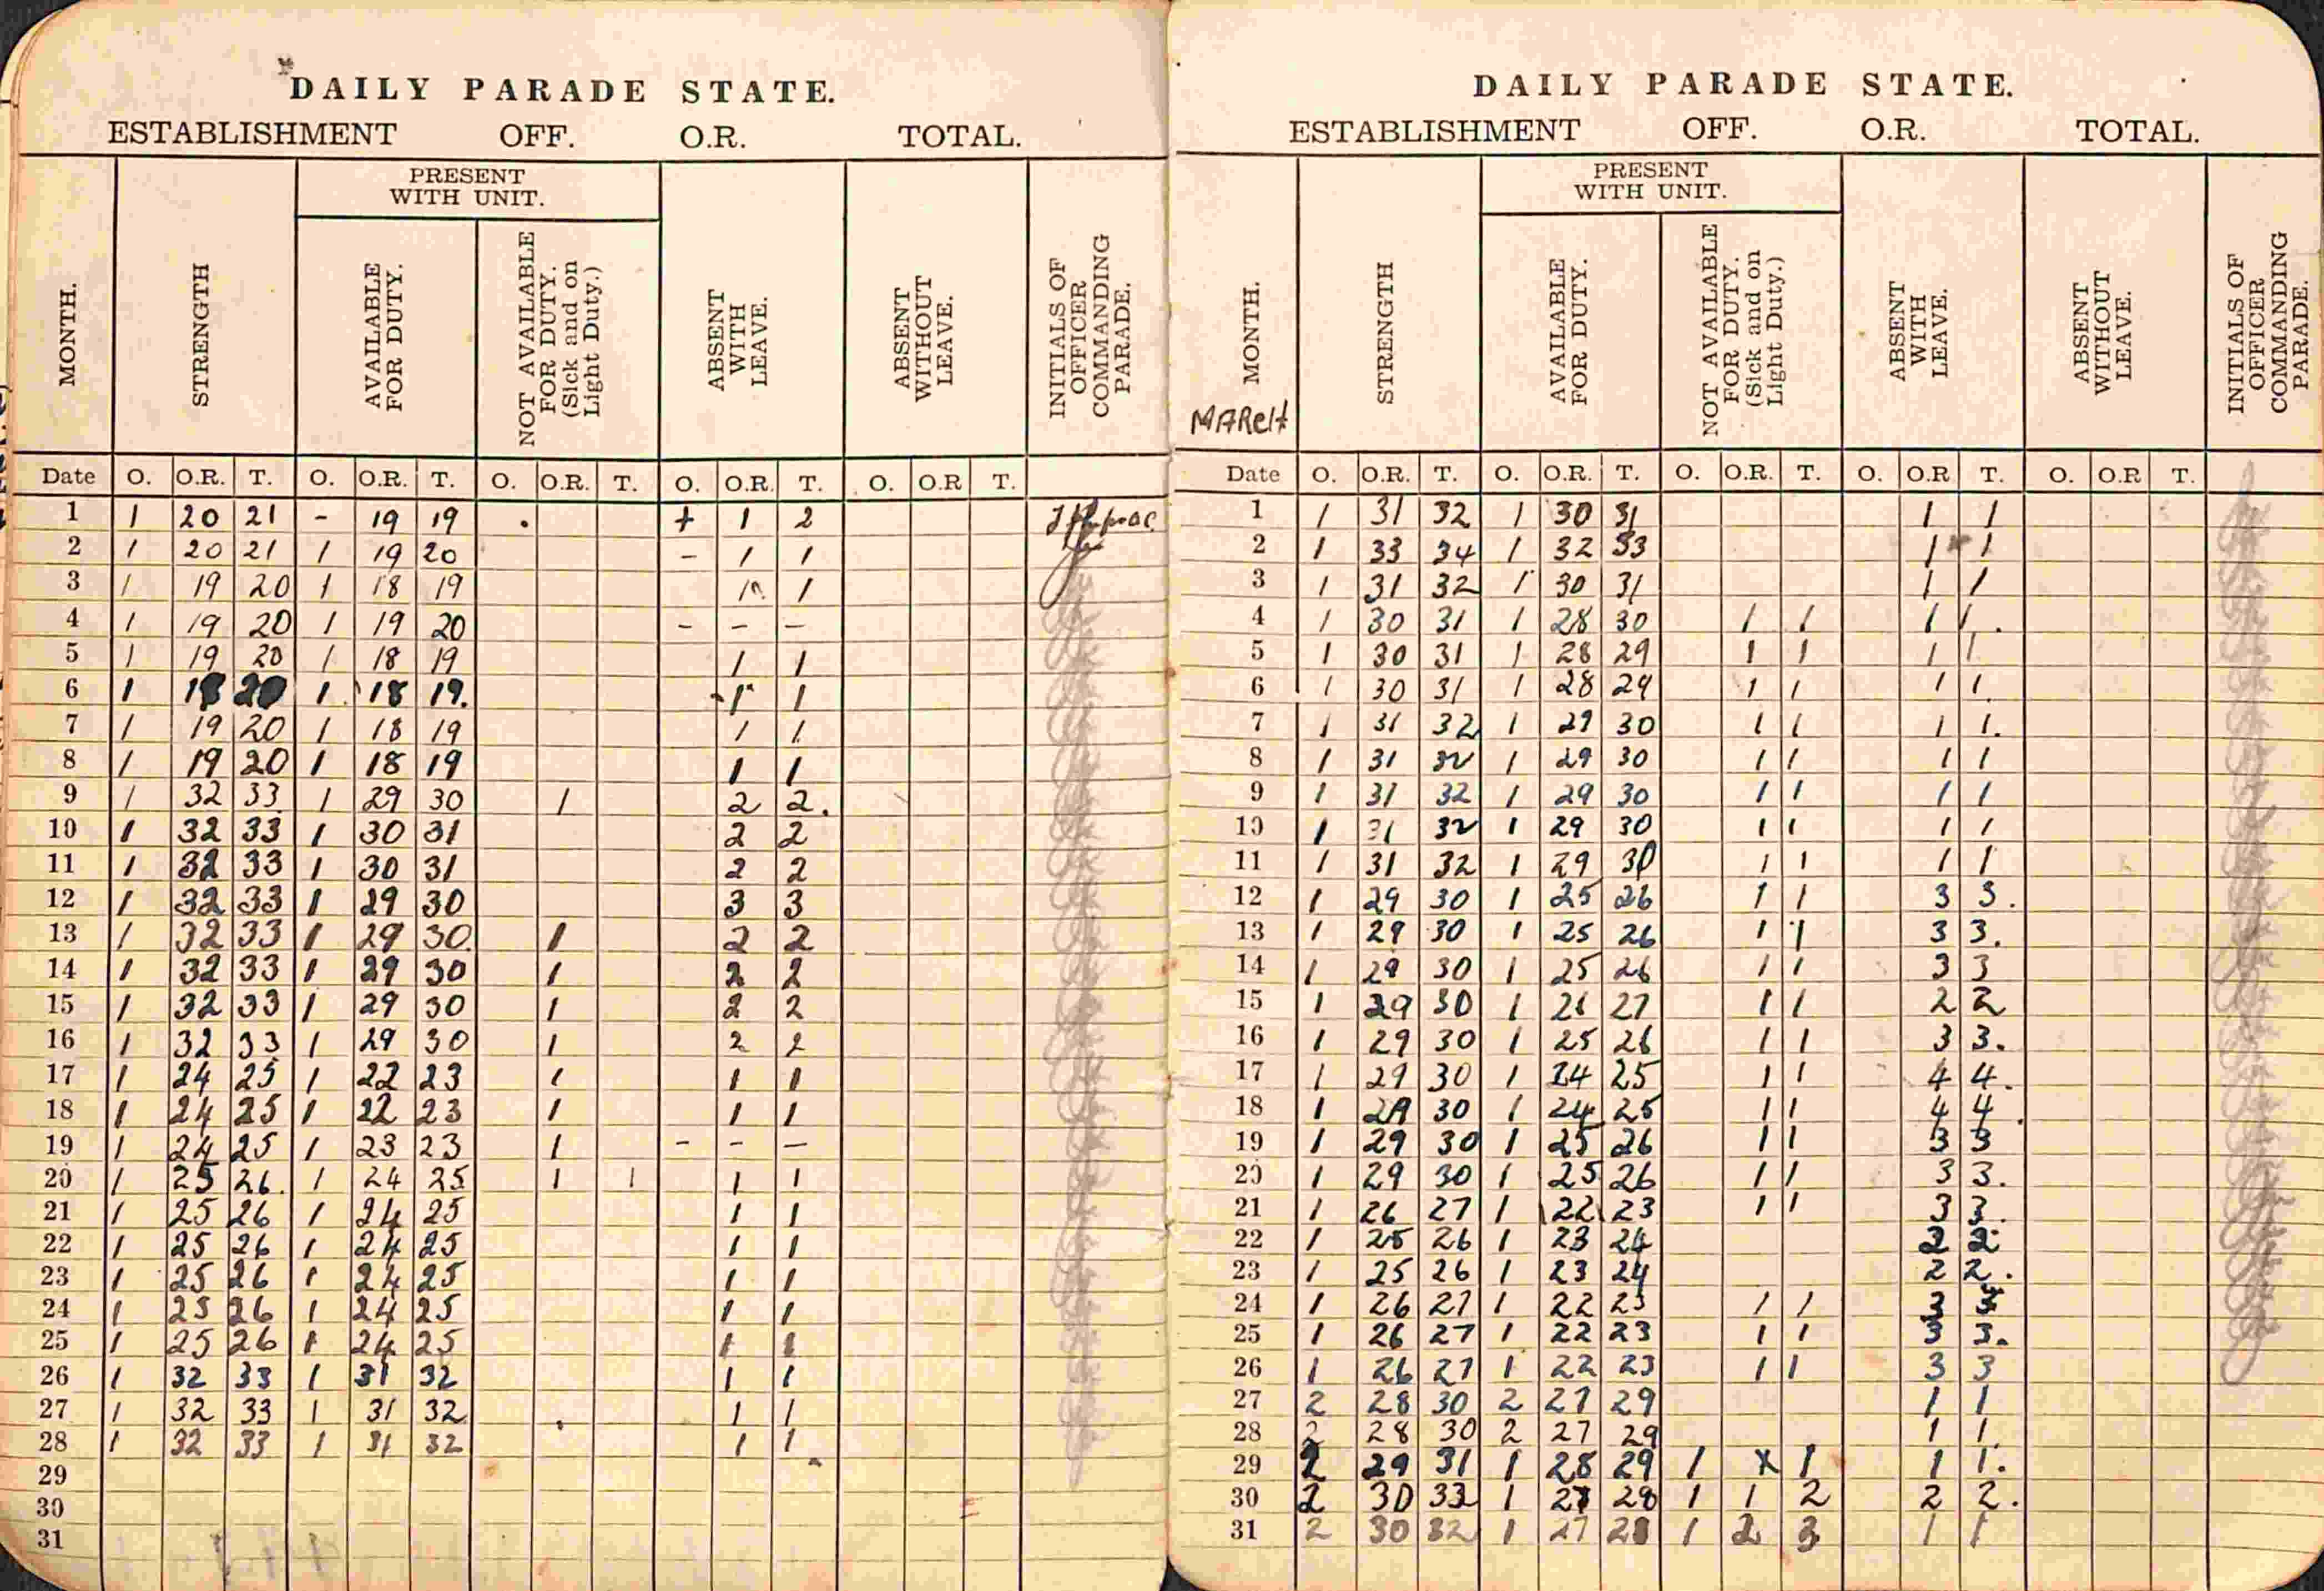 DAILY PARADE STATE.
ESTABLISHMENT OFF. O.R. TOTAL.
PRESENT WITH UNIT.
MONTH. STRENGTH AVAILABLE FOR DUTY. NOT AVAILABLE FOR DUTY. (Sick and on Light Duty.) ABSENT WITH LEAVE. ABSENT WITHOUT LEAVE. INITIALS OF OFFICER COMMANDING PARADE.
Date O. O.R. T. O. O.R. T. O. O.R. T. O. O.R. T. O. O.R T.
1 1 20 21 - 19 19 + 1 2
2 1 20 21 1 19 20 - 1 1
3 1 19 20 1 18 19 1 1
4 1 19 20 1 19 20 - - -
5 1 19 20 1 18 19 1 1
6 1 20 1 18 19. 1 1
7 1 19 20 1 18 19 1 1
8 1 19 20 1 18 19 1 1
9 1 32 33 1 29 30 1 2 2.
10 1 32 33 1 30 31 2 2
11 1 32 33 1 30 31 2 2
12 1 32 33 1 29 30 3 3
13 1 32 33 1 29 30. 1 2 2
14 1 32 33 1 29 30 1 2 2
15 1 32 33 1 29 30 1 2 2
16 1 32 33 1 29 30 1 2 2
17 1 24 25 1 22 23 1 1 1
18 1 24 25 1 22 23 1 1 1
19 1 24 25 1 23 23 1 - - -
20 1 25 26. 1 24 25 1 1 1 1
21 1 25 26 1 24 25 1 1
22 1 25 26 1 24 25 1 1
23 1 25 26 1 24 25 1 1
24 1 25 26 1 24 25 1 1
25 1 25 26 1 24 25 1 1
26 1 32 33 1 31 32 1 1
27 1 32 33 1 31 32 1 1
28 1 32 33 1 31 32 1 1
29
30
31
DAILY PARADE STATE.
ESTABLISHMENT OFF. O.R. TOTAL.
PRESENT WITH UNIT.
MONTH. STRENGTH AVAILABLE FOR DUTY. NOT AVAILABLE FOR DUTY. (Sick and on Light Duty.) ABSENT WITH LEAVE. ABSENT WITHOUT LEAVE. INITIALS OF OFFICER COMMANDING PARADE.
MARCH
Date O. O.R. T. O. O.R. T. O. O.R. T. O. O.R T. O. O.R T.
1 1 31 32 1 30 31 1 1
2 1 33 34 1 32 33 1 1
3 1 31 32 1 30 31 1 1
4 1 30 31 1 28 30 1 1 1 1.
5 1 30 31 1 28 29 1 1 1 1
6 1 30 31 1 28 29 1 1 1 1.
7 1 31 32 1 29 30 1 1 1 1.
8 1 31 32 1 29 30 1 1 1 1
9 1 31 32 1 29 30 1 1 1 1
10 1 31 32 1 29 30 1 1 1 1
11 1 31 32 1 29 30 1 1 1 1
12 1 29 30 1 25 26 1 1 3 3.
13 1 29 30 1 25 26 1 1 3 3.
14 1 29 30 1 25 26 1 1 3 3
15 1 29 30 1 26 27 1 1 2 2
16 1 29 30 1 25 26 1 1 3 3.
17 1 29 30 1 24 25 1 1 4 4.
18 1 29 30 1 24 25 1 1 4 4.
19 1 29 30 1 25 26 1 1 3 3
20 1 29 30 1 25 26 1 1 3 3.
21 1 26 27 1 22 23 1 1 3 3.
22 1 25 26 1 23 24 2 2
23 1 25 26 1 23 24 2 2.
24 1 26 27 1 22 23 1 1 3 3
25 1 26 27 1 22 23 1 1 3 3.
26 1 26 27 1 22 23 1 1 3 3
27 2 28 30 2 27 29 1 1
28 2 28 30 2 27 29 1 1.
29 2 29 31 1 28 29 1 x 1 1 1.
30 2 30 33 1 27 28 1 1 2 2 2.
31 2 30 32 1 27 28 1 2 3 1 1